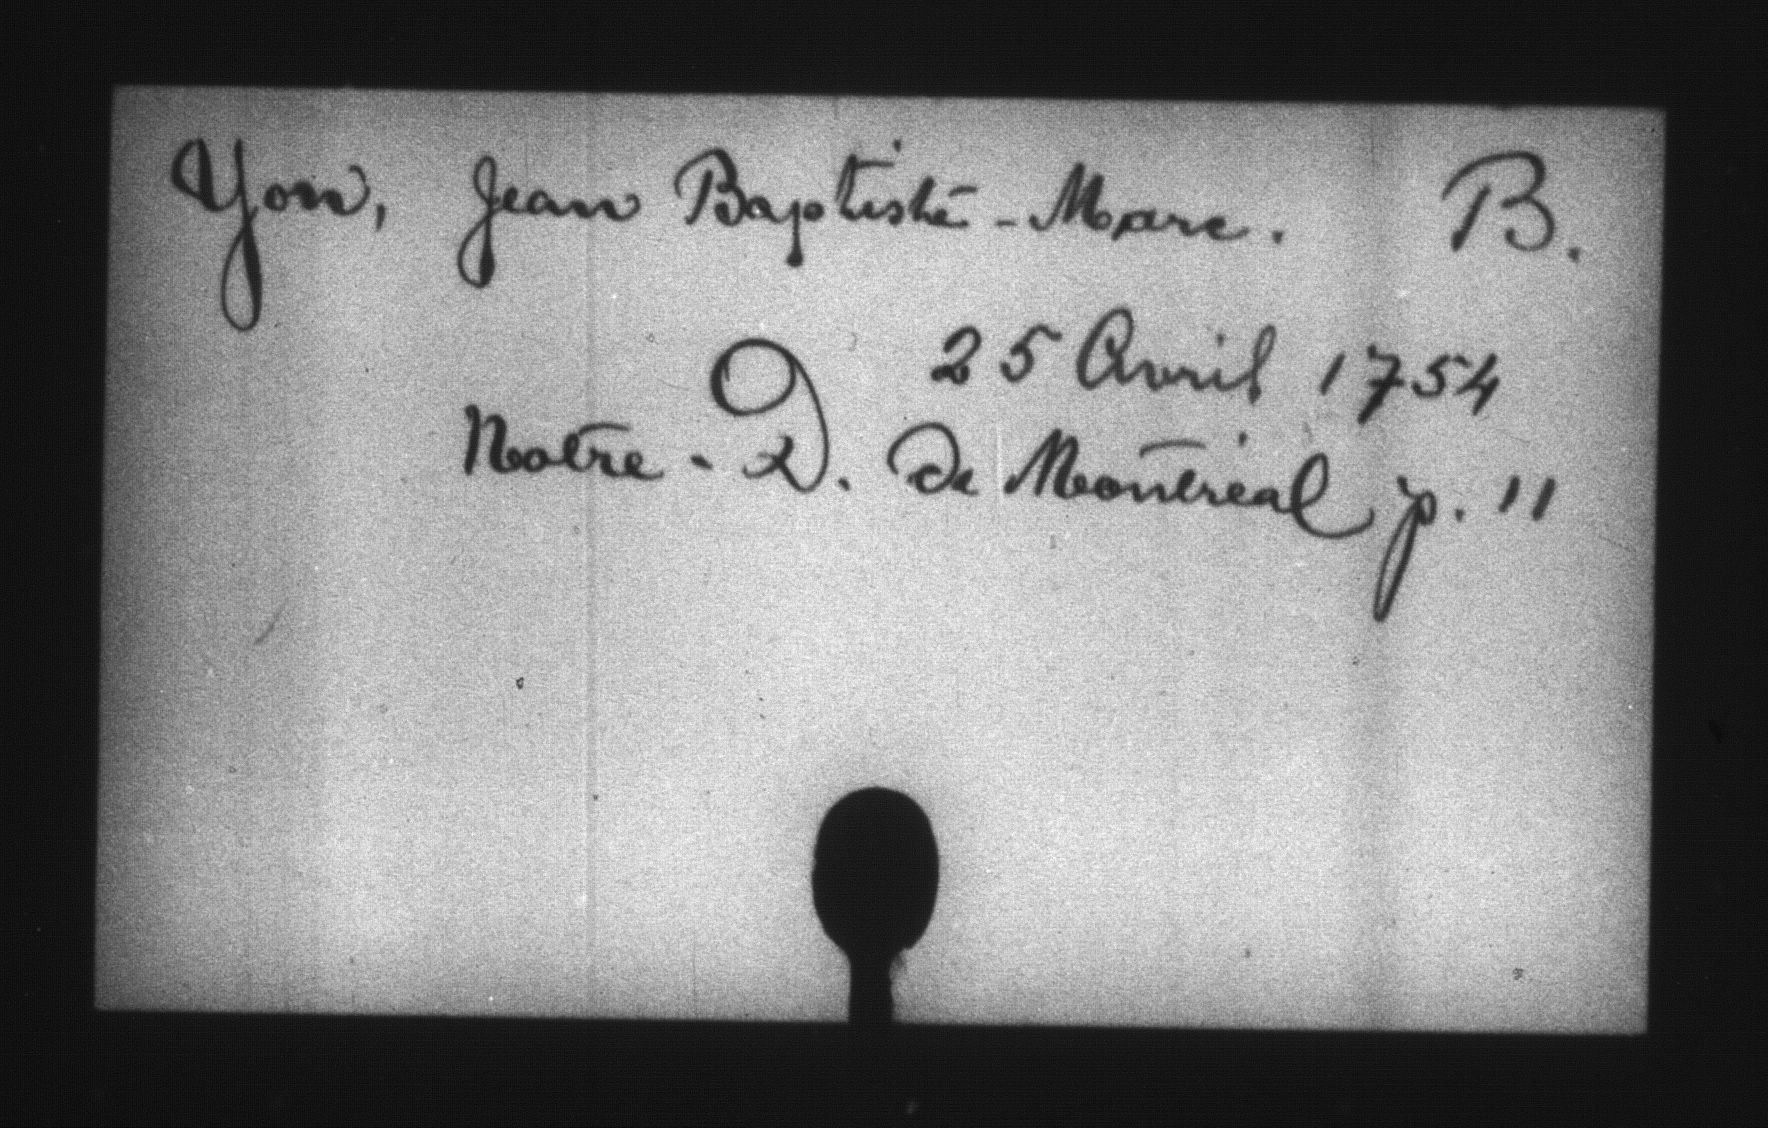 Yon, Jean Baptiste - Marc. B.
25 Avril 1754
Notre - D. de Montréal p. 11